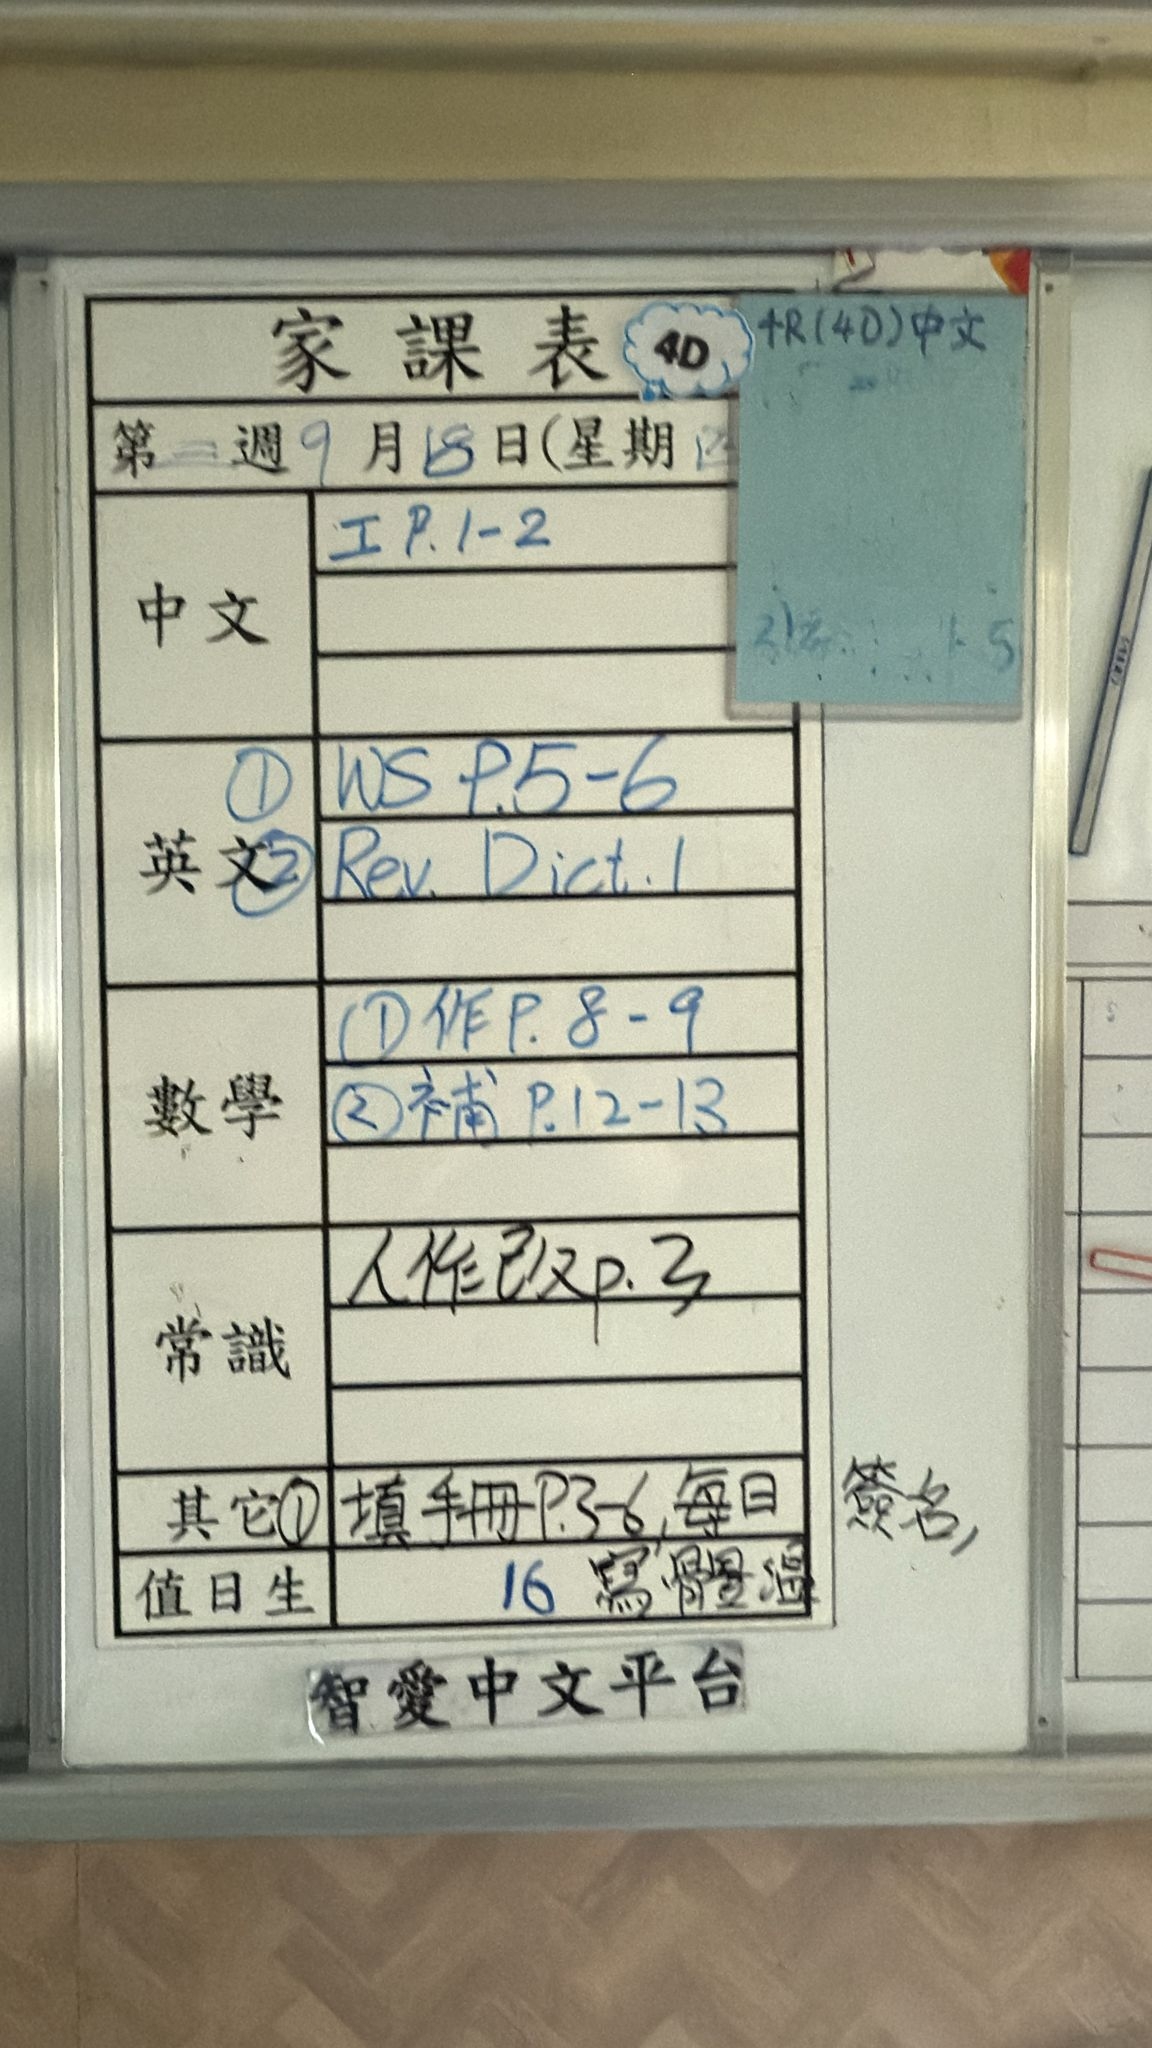 家課表 4D
4R(4D)中文
第 週 9月18日(星期
中文
工 P.1-2
英文
① WS P.5-6
② Rev. Dict.1
數學
① 作 P.8-9
② 補 P.12-13
常識
人作已改p.3
其它① 填手冊P.3-6,每日簽名,
值日生
16 寫體溫
智愛中文平台